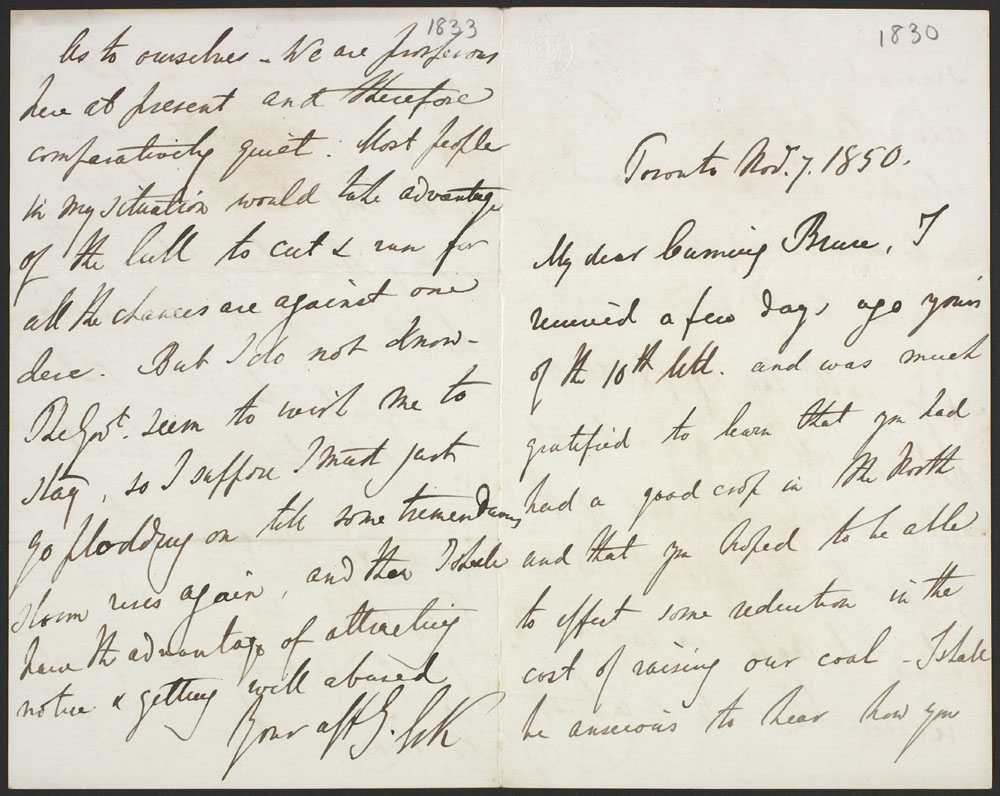 1830
Toronto Nov. 7. 1850.
My dear Cumming Bruce, I
received a few days ago yours
of the 10th Ult. and was much
gratified to learn that you had
had a good crop in the North
and that you hoped to be able
to effect some reduction in the
cost of raising our coal - I shall
be anxious to hear how you
1833
As to ourselves - We are prosperous
here at present and therefore
comparatively quiet. Most people
in my situation would take advantage
of the lull to cut & run for
all the chances are against one
here. But I do not know -
The Govt. seem to wish me to
stay, so I suppose I must just
go plodding on till some tremendous
storm rises again, and then I shall
have the advantage of attracting
notice & getting well abused
Your aff